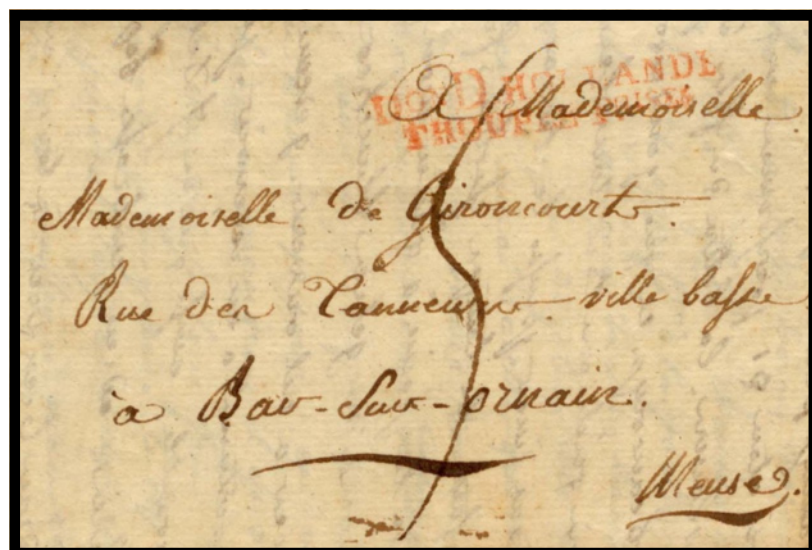 D HOLLANDE
TROUPES
A Mademoiselle
Mademoiselle de Gironcourt.
Rue des Tanneurs ville basse
à Bar-Sur-ornain.
Meuse.